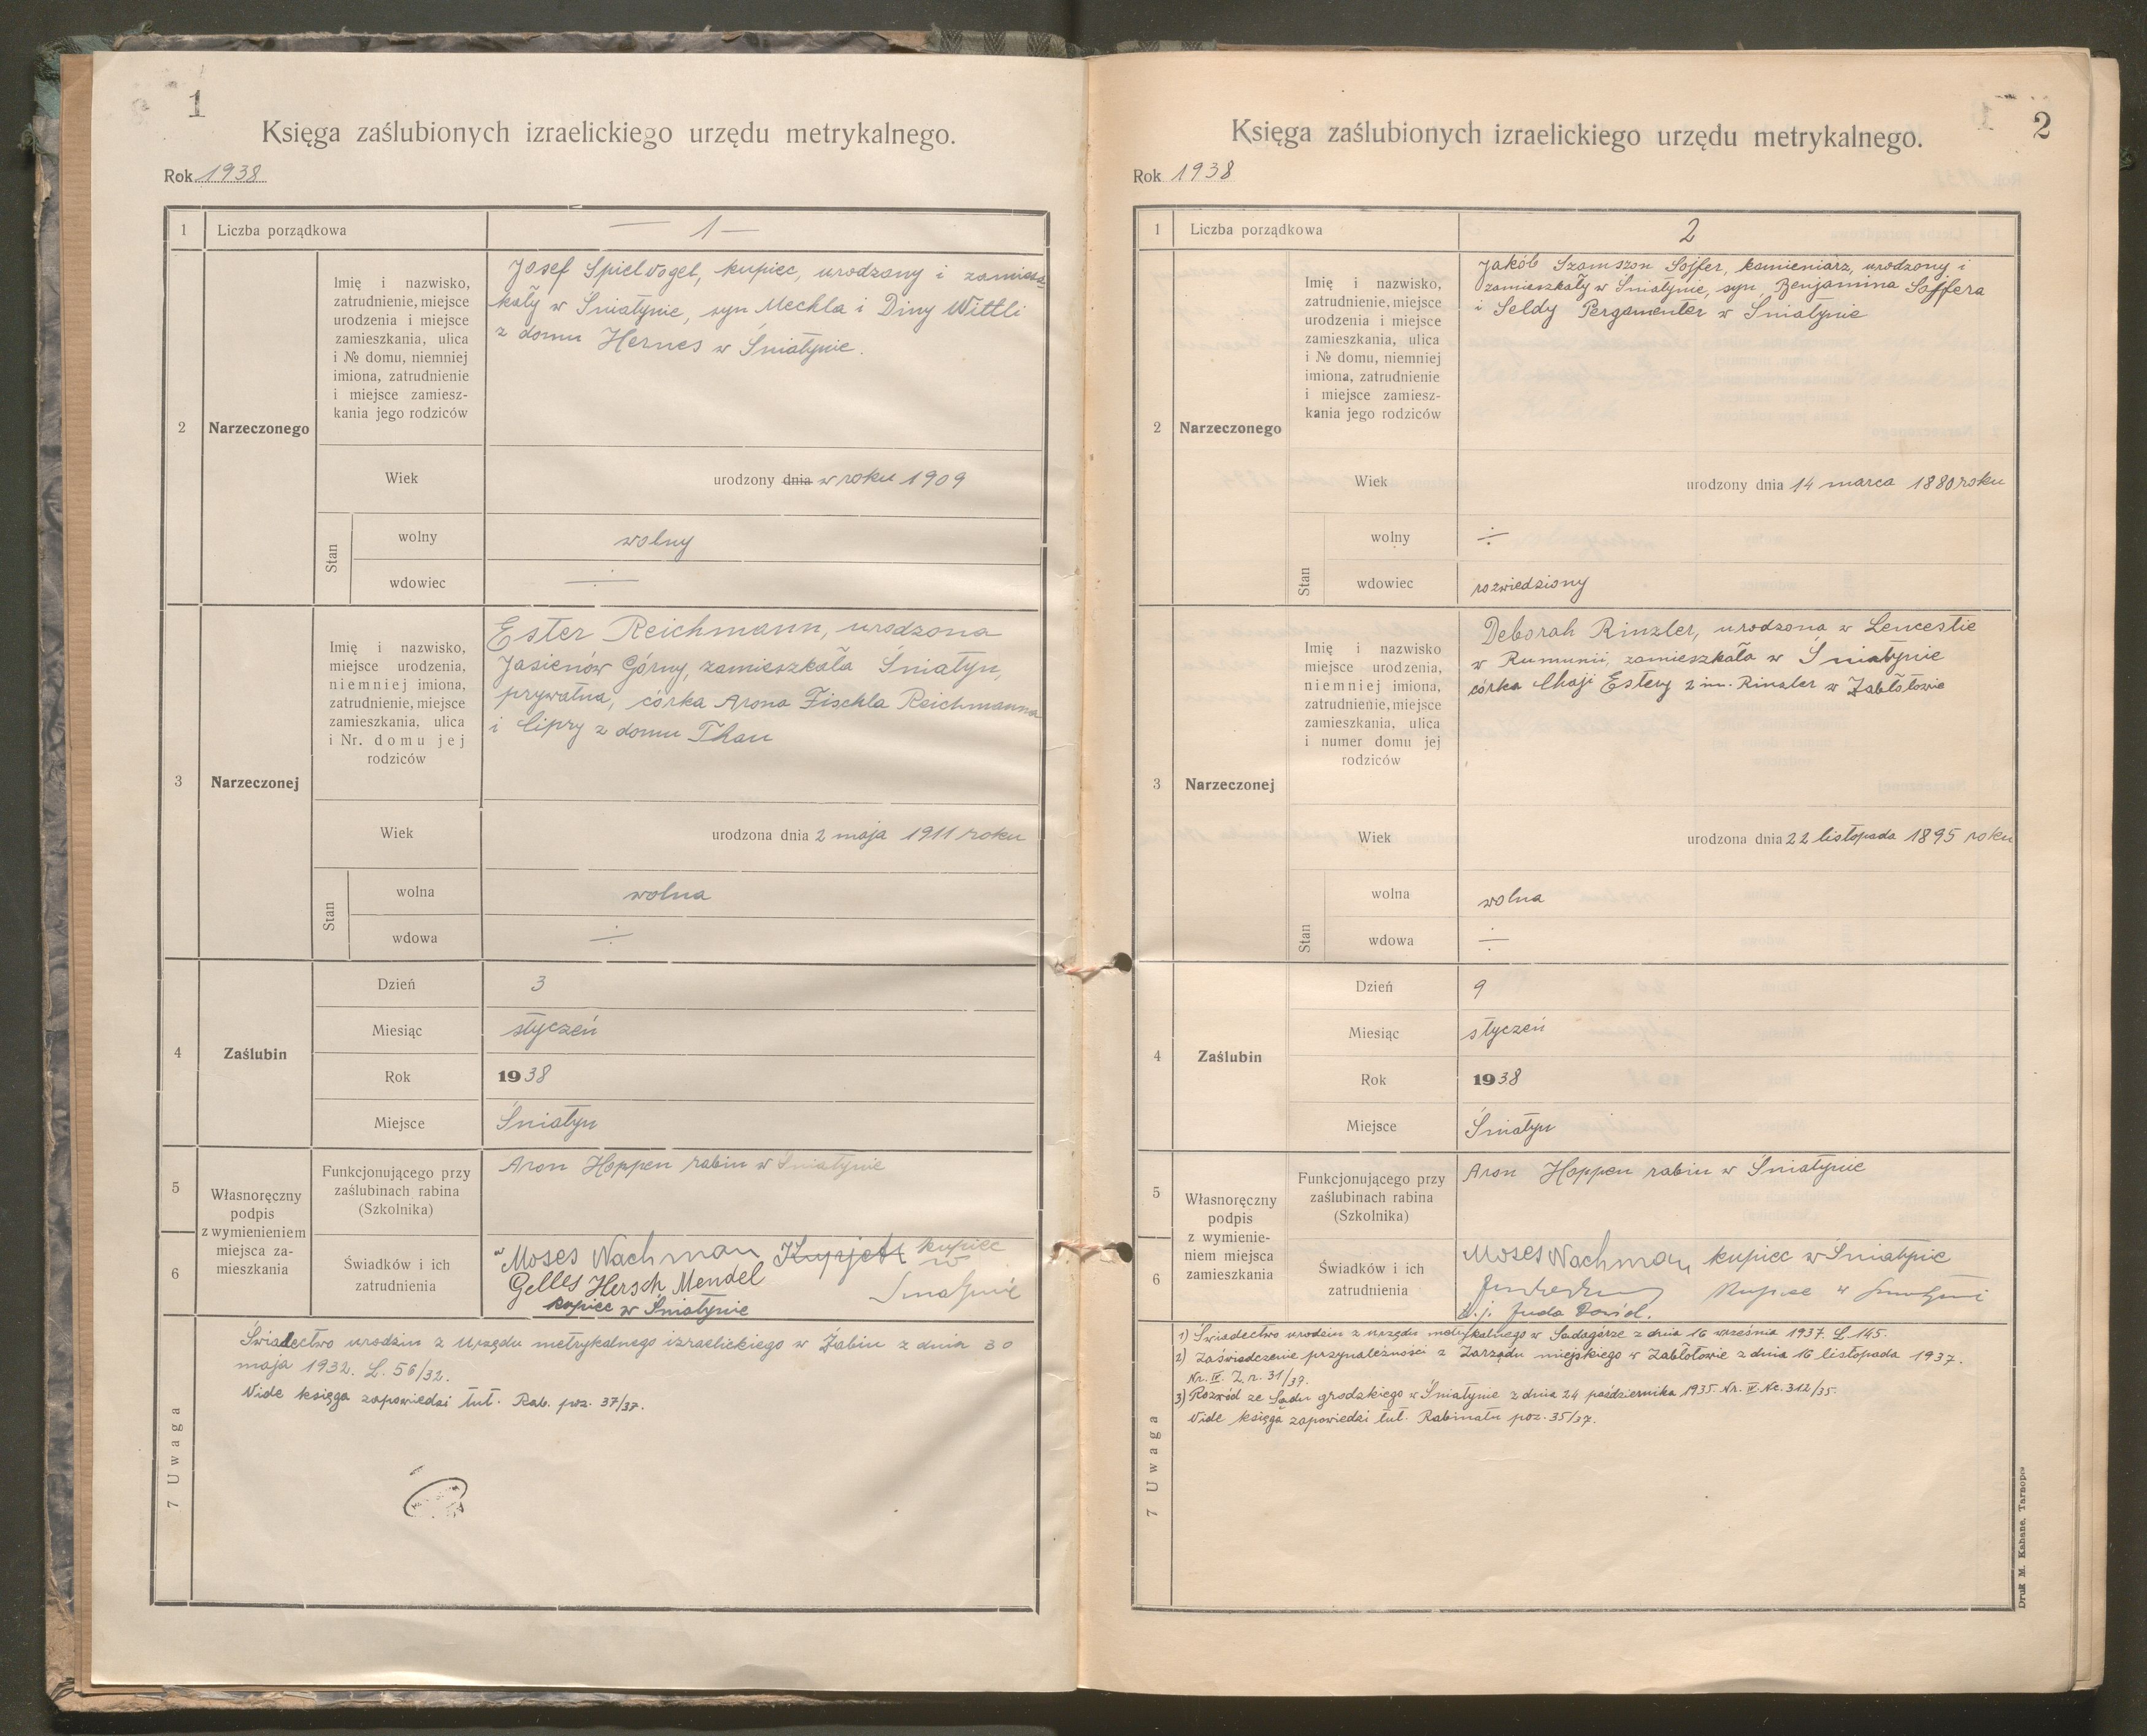 1
Księga zaślubionych izraelickiego urzędu metrykalnego.
Rok 1938
1 Liczba porządkowa — 1 —
2 Narzeczonego
Imię i nazwisko,
zatrudnienie, miejsce
urodzenia i miejsce
zamieszkania, ulica
i № domu, niemniej
imiona, zatrudnienie
i miejsce zamiesz-
kania jego rodziców
Josef Spielvogel, kupiec, urodzony i zamiesz-
kały w Śniatynie, syn Mechla i Diny Wittli
z domu Hernes w Śniatynie.
Wiek urodzony dnia w roku 1909
Stan
wolny wolny
wdowiec ÷
3 Narzeczonej
Imię i nazwisko,
miejsce urodzenia,
niemniej imiona,
zatrudnienie, miejsce
zamieszkania, ulica
i Nr. domu jej
rodziców
Ester Reichmann, urodzona
Jasienów Górny, zamieszkała Śniatyn,
prywatna, córka Arona Fischla Reichmanna
i Cipry z domu Thau
Wiek urodzona dnia 2 maja 1911 roku
Stan
wolna wolna
wdowa ÷
4 Zaślubin
Dzień 3
Miesiąc styczeń
Rok 1938
Miejsce Śniatyn
5
6
Własnoręczny
podpis
z wymienieniem
miejsca za-
mieszkania
Funkcjonującego przy
zaślubinach rabina
(Szkolnika)
Aron Hoppen rabin w Śniatynie
Świadków i ich
zatrudnienia
Moses Nachman kupiec
w
Gelles Hersch Mendel Śniatynie
kupiec w Śniatynie
7 Uwaga
Świadectwo urodzin z Urzędu metrykalnego izraelickiego w Żabiu z dnia 30
maja 1932. L. 56/32.
Vide księga zapowiedzi tut. Rab. poz. 37/37.
2
Księga zaślubionych izraelickiego urzędu metrykalnego.
Rok 1938
1 Liczba porządkowa 2
2 Narzeczonego
Imię i nazwisko,
zatrudnienie, miejsce
urodzenia i miejsce
zamieszkania, ulica
i № domu, niemniej
imiona, zatrudnienie
i miejsce zamiesz-
kania jego rodziców
Jakób Szamszon Sojfer, kamieniarz, urodzony i
zamieszkały w Śniatynie, syn Benjamina Sojfera
i Seldy Pergamenter w Śniatynie
Wiek urodzony dnia 14 marca 1880 roku
Stan
wolny ÷
wdowiec rozwiedziony
3 Narzeczonej
Imię i nazwisko,
miejsce urodzenia,
niemniej imiona,
zatrudnienie, miejsce
zamieszkania, ulica
i numer domu jej
rodziców
Deborah Rinzler, urodzona w Lencestie
w Rumunii, zamieszkała w Śniatynie
córka Chaji Estery 2 im. Rinzler w Zabłotowie
Wiek urodzona dnia 22 listopada 1895 roku
Stan
wolna wolna
wdowa ÷
4 Zaślubin
Dzień 9
Miesiąc styczeń
Rok 1938
Miejsce Śniatyn
5
6
Własnoręczny
podpis
z wymienie-
niem miejsca
zamieszkania
Funkcjonującego przy
zaślubinach rabina
(Szkolnika)
Aron Hoppen rabin w Śniatynie
Świadków i ich
zatrudnienia
Moses Nachman kupiec w Śniatynie
Kupiec w Śniatynie
Juda Dawid.
7 Uwaga
1) Świadectwo urodzin z urzędu metrykalnego w Sadagórze z dnia 16 września 1937. L 145.
2) Zaświadczenie przynależności z Zarządu miejskiego w Zabłotowie z dnia 16 listopada 1937.
Nr. IV. Z. n. 31/37.
3) Rozwód ze Sądu grodzkiego w Śniatynie z dnia 24 października 1935. Nr. IV. Nc. 312/35.
Vide księga zapowiedzi tut. Rabinatu poz. 35/37.
Druk M. Kahane, Tarnopol